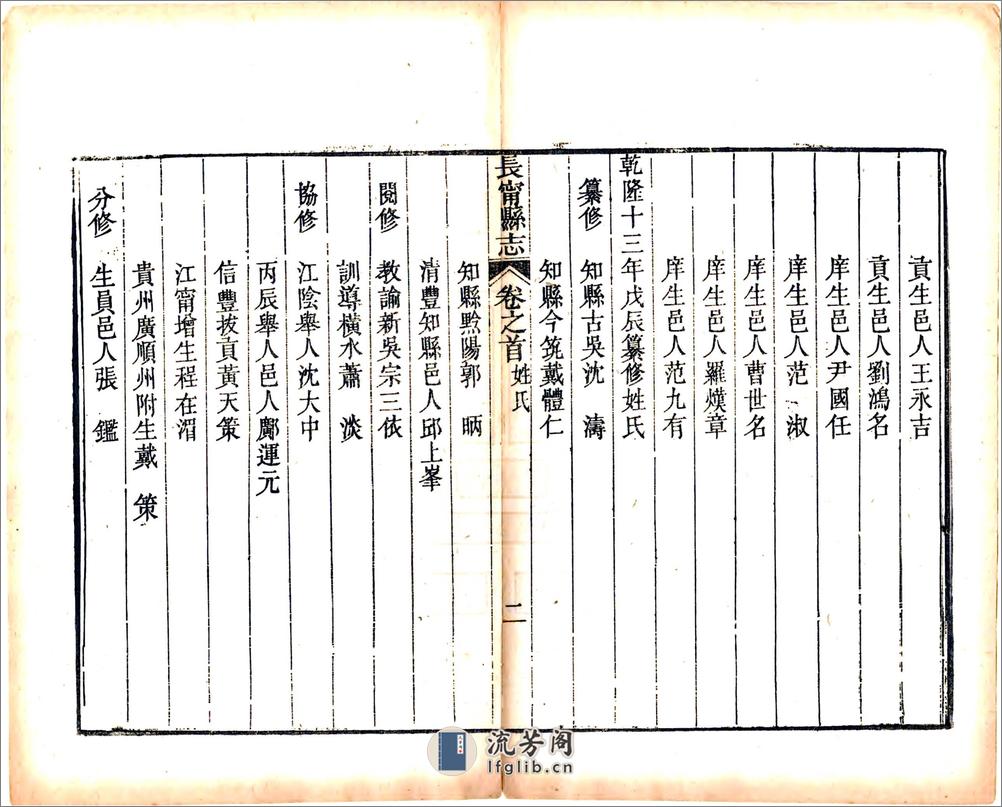 貢生邑人王永吉
貢生邑人劉鴻名
庠生邑人尹國任
庠生邑人范　淑
庠生邑人曹世名
庠生邑人羅熯章
庠生邑人范九有
乾隆十三年戊辰纂修姓氏
纂修　知縣古吳沈　濤
知縣今筑戴體仁
長甯縣志　卷之首　姓氏　二
知縣黔陽郭　昞
清豐知縣邑人邱上峯
閱修　教諭新吳宗三依
訓導橫水蕭　淡
協修　江陰舉人沈大中
丙辰舉人邑人鄺運元
信豐拔貢黃天策
江甯增生程在湄
貴州廣順州附生戴　策
分修　生員邑人張　鑑
流芳阁
lfglib.cn